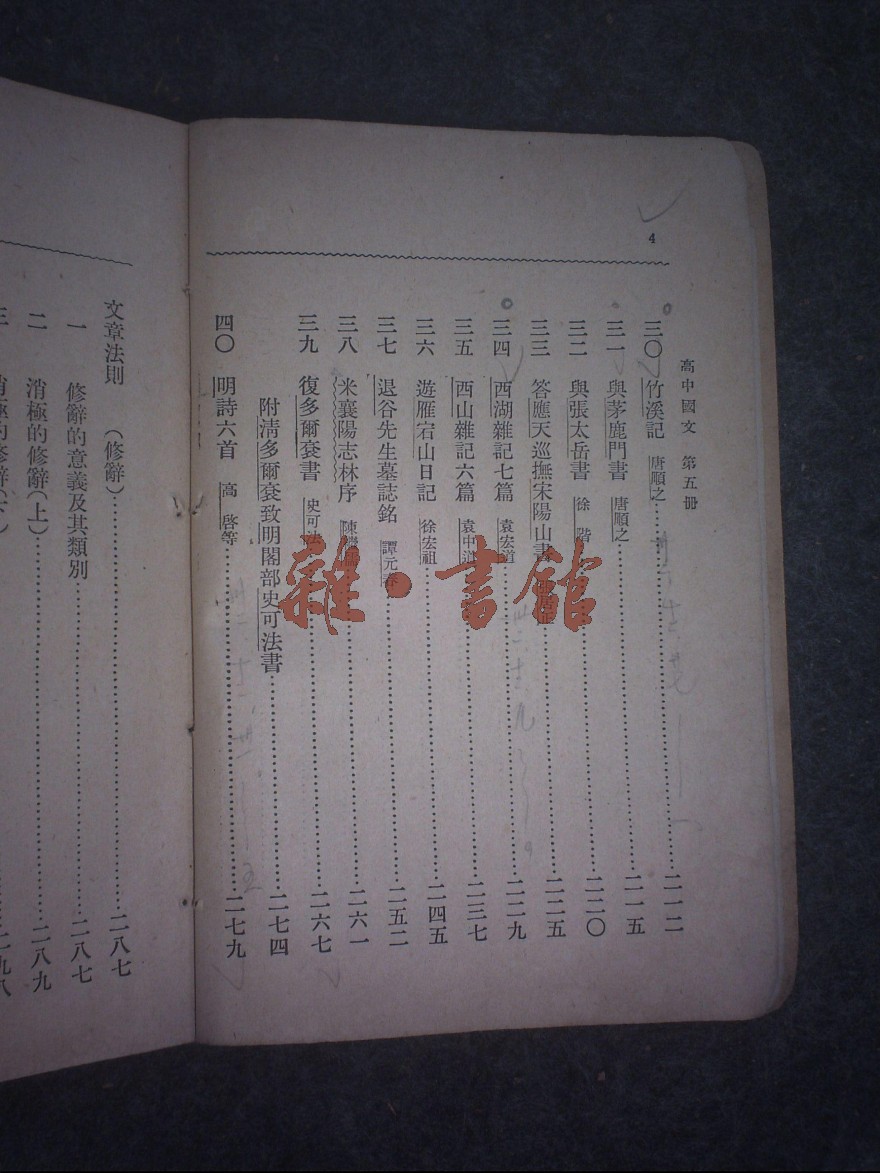 4
高中國文 第五冊
三〇 竹溪記 唐順之 二一二
三一 與茅鹿門書 唐順之 二一五
三二 與張太岳書 徐階 二二〇
三三 答應天巡撫宋陽山書 二二五
三四 西湖雜記七篇 袁宏道 二二九
三五 西山雜記六篇 袁中道 二三七
三六 遊雁宕山日記 徐宏祖 二四五
三七 退谷先生墓誌銘 譚元春 二五二
三八 米襄陽志林序 陳 二六一
三九 復多爾袞書 史可法 二六七
附清多爾袞致明閣部史可法書 二七四
四〇 明詩六首 高啓等 二七九
文章法則 (修辭) 二八七
一 修辭的意義及其類別 二八七
二 消極的修辭(上) 二八九
三 消極的修辭 二九八
雜·書館